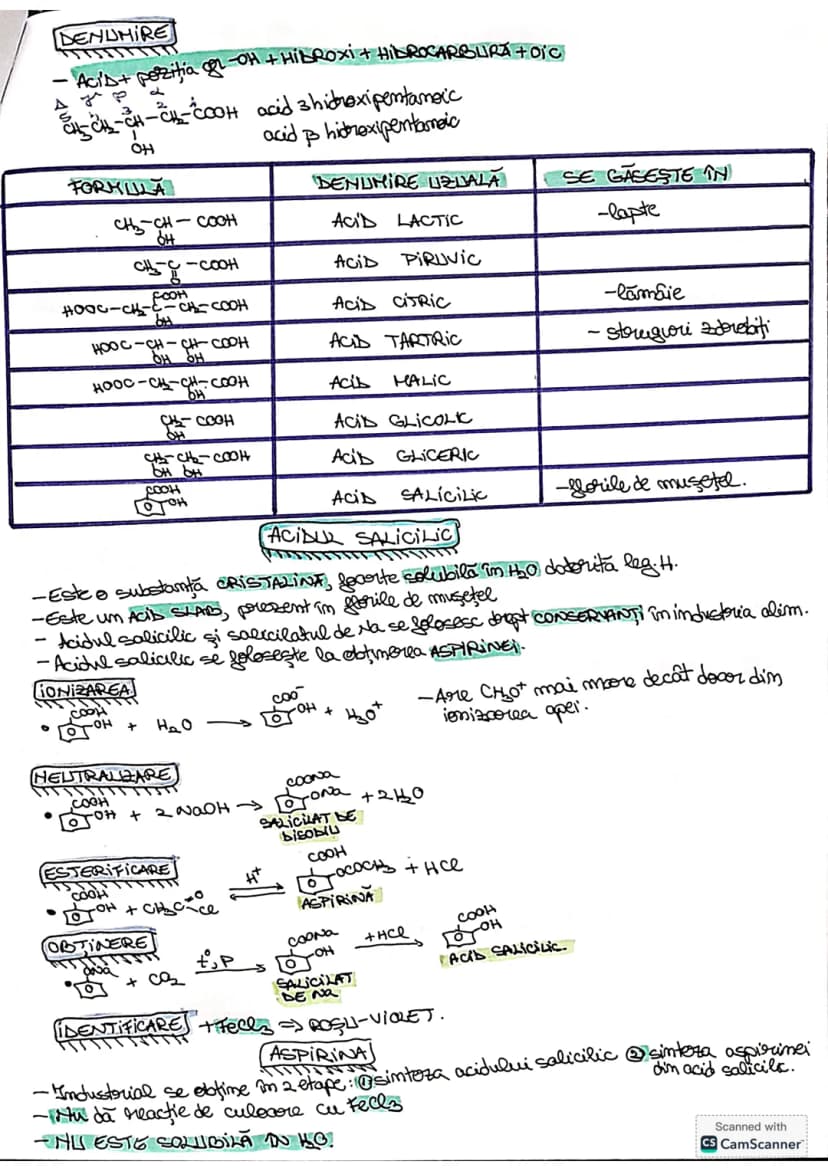 DENUMIRE
- Acid + poziția gr -OH + HIDROXI + HIDROCARBURĂ + OIC
Δ γ β α
5 4 3 2 1
CH₃-CH₂-CH-CH₂-COOH acid 3 hidroxipentanoic
OH acid β hidroxipentanoic
FORMULĂ DENUMIRE UZUALĂ SE GĂSEȘTE ÎN
CH₃-CH-COOH ACID LACTIC -lapte
OH
CH₃-C-COOH ACID PIRUVIC
O
COOH
HOOC-CH₂-C-CH₂-COOH ACID CITRIC -lămâie
OH
HOOC-CH-CH-COOH ACID TARTRIC - struguri zdrobiți
OH OH
HOOC-CH₂-CH-COOH ACID MALIC
OH
CH₂-COOH ACID GLICOLIC
OH
CH₂-CH₂-COOH ACID GLICERIC
OH OH
COOH
OH ACID SALICILIC -florile de mușețel.
ACIDUL SALICILIC
- Este o substanță CRISTALINĂ, foarte solubilă în H₂O datorită leg. H.
- Este un ACID SLAB, prezent în florile de mușețel
- Acidul salicilic și salicilatul de Na se folosesc drept CONSERVANȚI în industria alim.
- Acidul salicilic se folosește la obținerea ASPIRINEI.
IONIZAREA
COOH COO⁻
• OH + H₂O → OH + H₃O⁺
- Are CH₃O⁺ mai mare decât doar din
ionizarea apei.
NEUTRALIZARE
COOH COONa
• OH + 2 NaOH → ONa + 2H₂O
SALICILAT DE
DISODIU
ESTERIFICARE
COOH H⁺ COOH
• OH + CH₃C=O Cl ⇌ OCOCH₃ + HCl
ASPIRINĂ
OBȚINERE
ONa t°, P COONa +HCl COOH
• + CO₂ → OH → OH
SALICILAT
DE Na
ACID SALICILIC
IDENTIFICARE + FeCl₃ ⇒ ROȘU-VIOLET.
ASPIRINA
- Industrial se obține în 2 etape: ① sinteza acidului salicilic ② sinteza aspirinei
din acid salicilic.
- Nu dă reacție de culoare cu FeCl₃
- NU ESTE SOLUBILĂ ÎN H₂O!
Scanned with
CS CamScanner